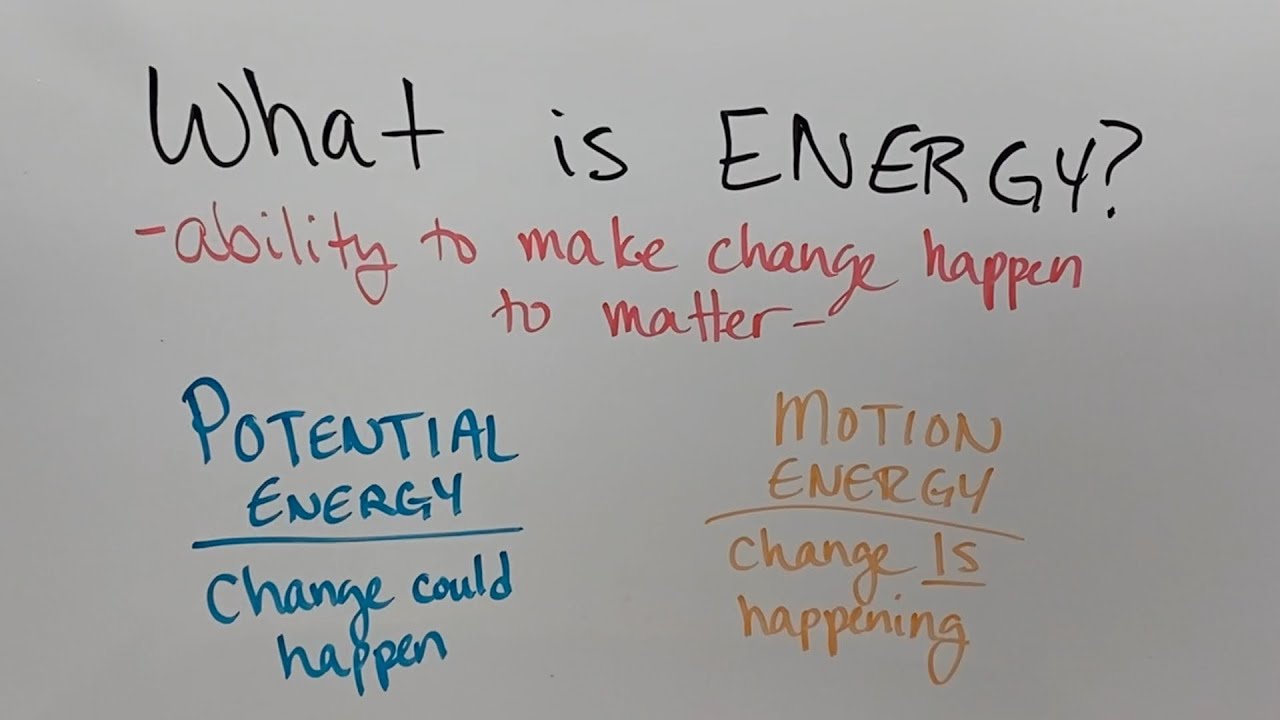 What is ENERGY?
-ability to make change happen
to matter-
POTENTIAL
ENERGY
Change could
happen
MOTION
ENERGY
Change IS
happening